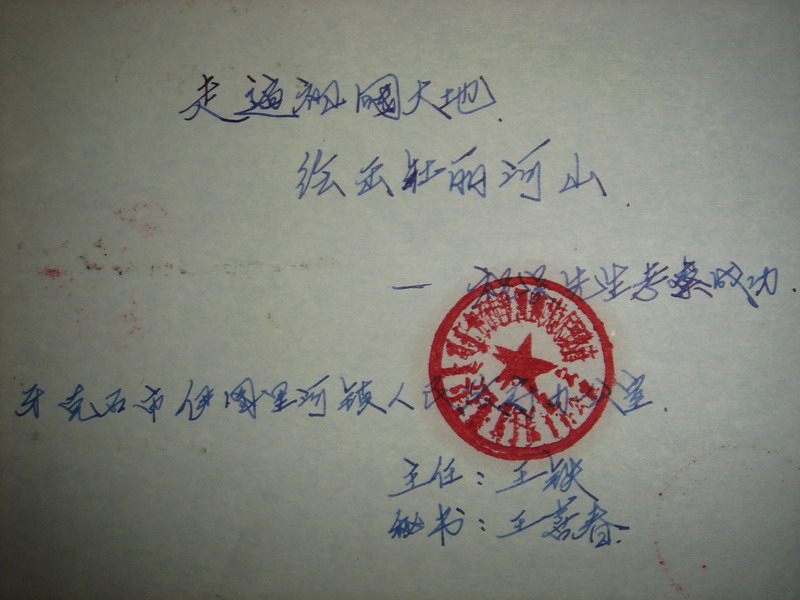 走遍祖國大地.
绘出壮丽河山.
— 先生考察成功.
牙克石市伊图里河镇人民政府办公室.
主任：王铁
秘书：王茗春.